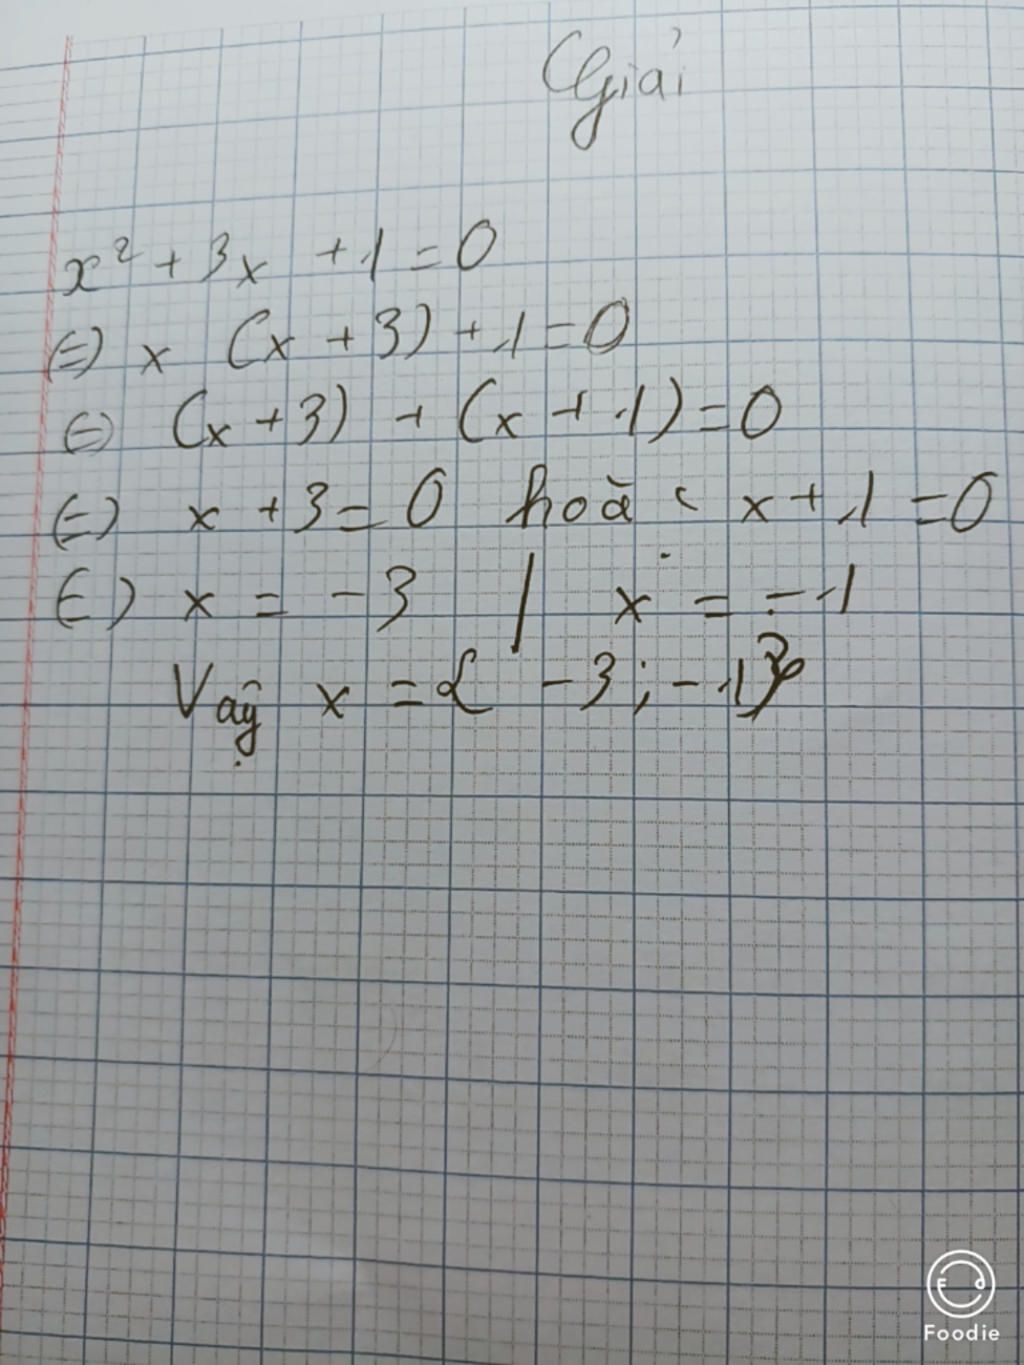 Giải
x² + 3x + 1 = 0
(=) x (x + 3) + 1 = 0
(=) (x + 3) + (x + 1) = 0
(=) x + 3 = 0 hoặc x + 1 = 0
(=) x = -3 | x = -1
Vậy x = { -3 ; -1 }
Foodie